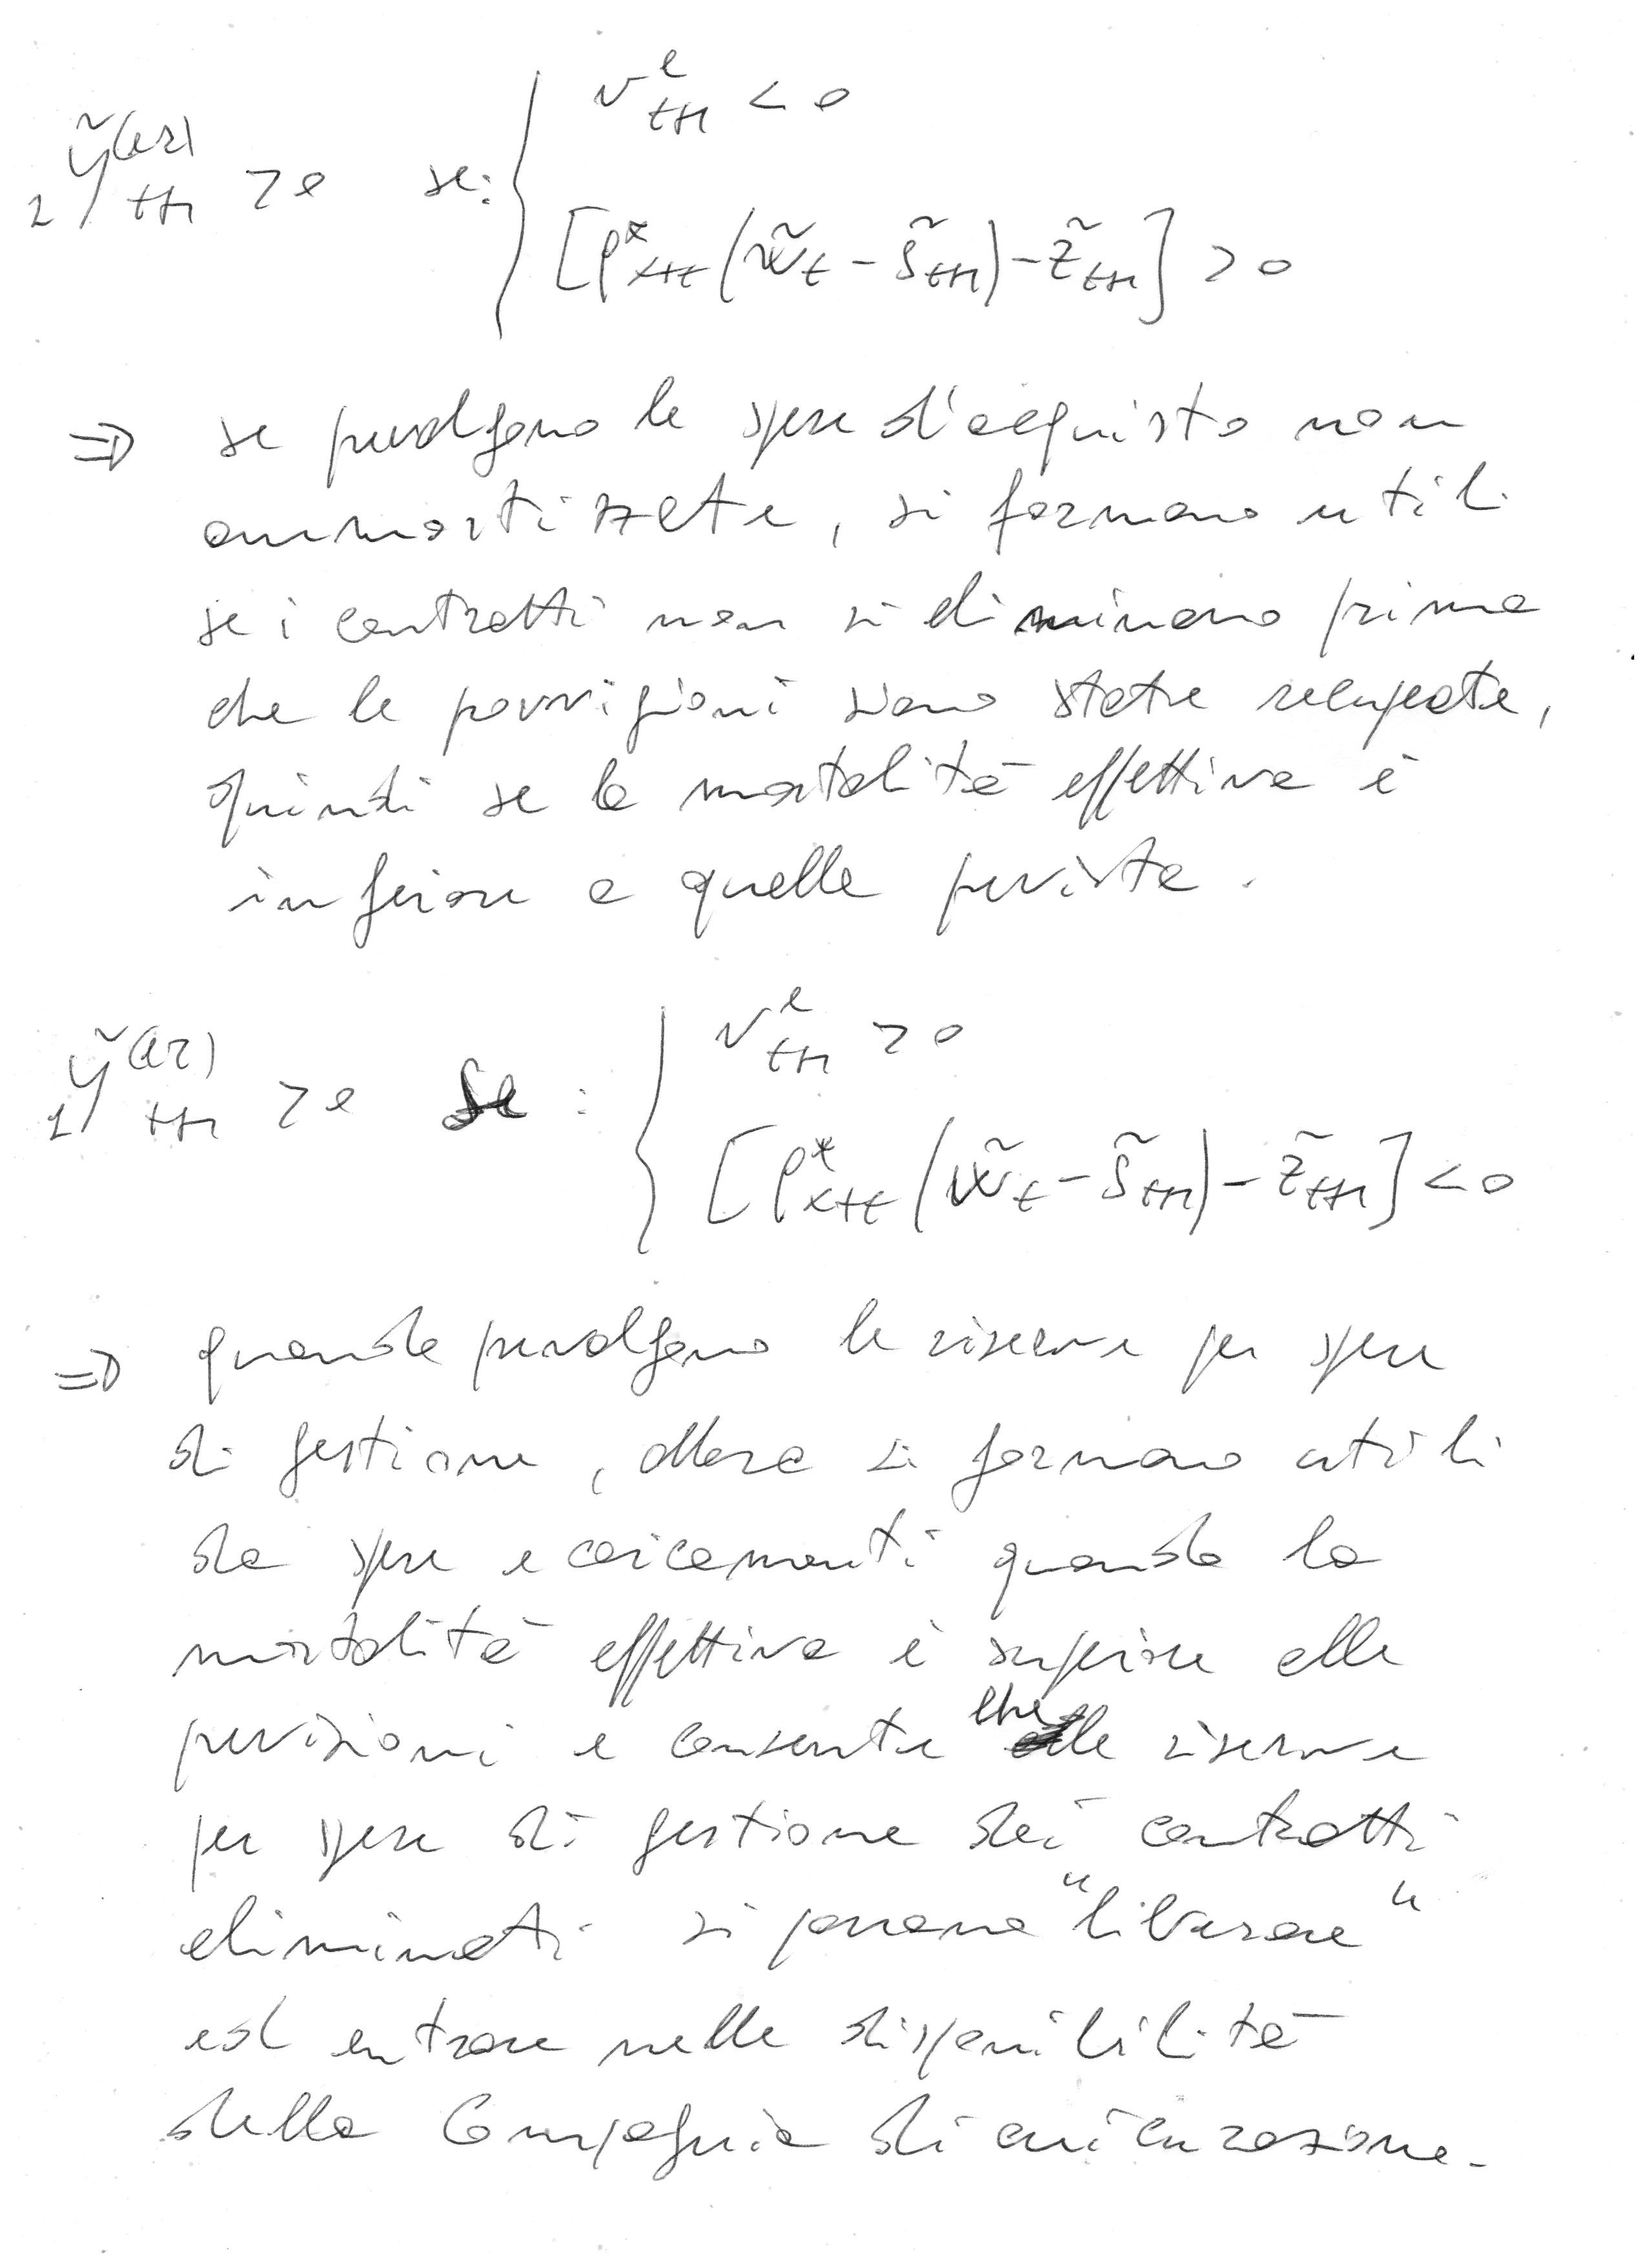 ₁ỹ⁽ᵃʳ⁾ₜ₊₁ > 0 se: { vᵉₜ₊₁ < 0
[ρ*ₓ₊ₜ (w̃ₜ - s̃ₜ₊₁) - z̃ₜ₊₁] > 0
⇒ se prevalgono le spese d'acquisto non
ammortizzate, si formano utili
se i contratti non si eliminano prima
che le provvigioni siano state recuperate,
quindi se la mortalità effettiva è
inferiore a quella prevista.
₁ỹ⁽ᵃʳ⁾ₜ₊₁ > 0 se : { vᵉₜ₊₁ > 0
[ρ*ₓ₊ₜ (w̃ₜ - s̃ₜ₊₁) - z̃ₜ₊₁] < 0
⇒ quando prevalgono le riserve per spese
di gestione, allora si formano utili
da spese e caricamenti quando la
mortalità effettiva è superiore alle
previsioni e consente che le riserve
per spese di gestione dei contratti
eliminati si possano "liberare"
ed entrare nelle disponibilità
della Compagnia di assicurazione.